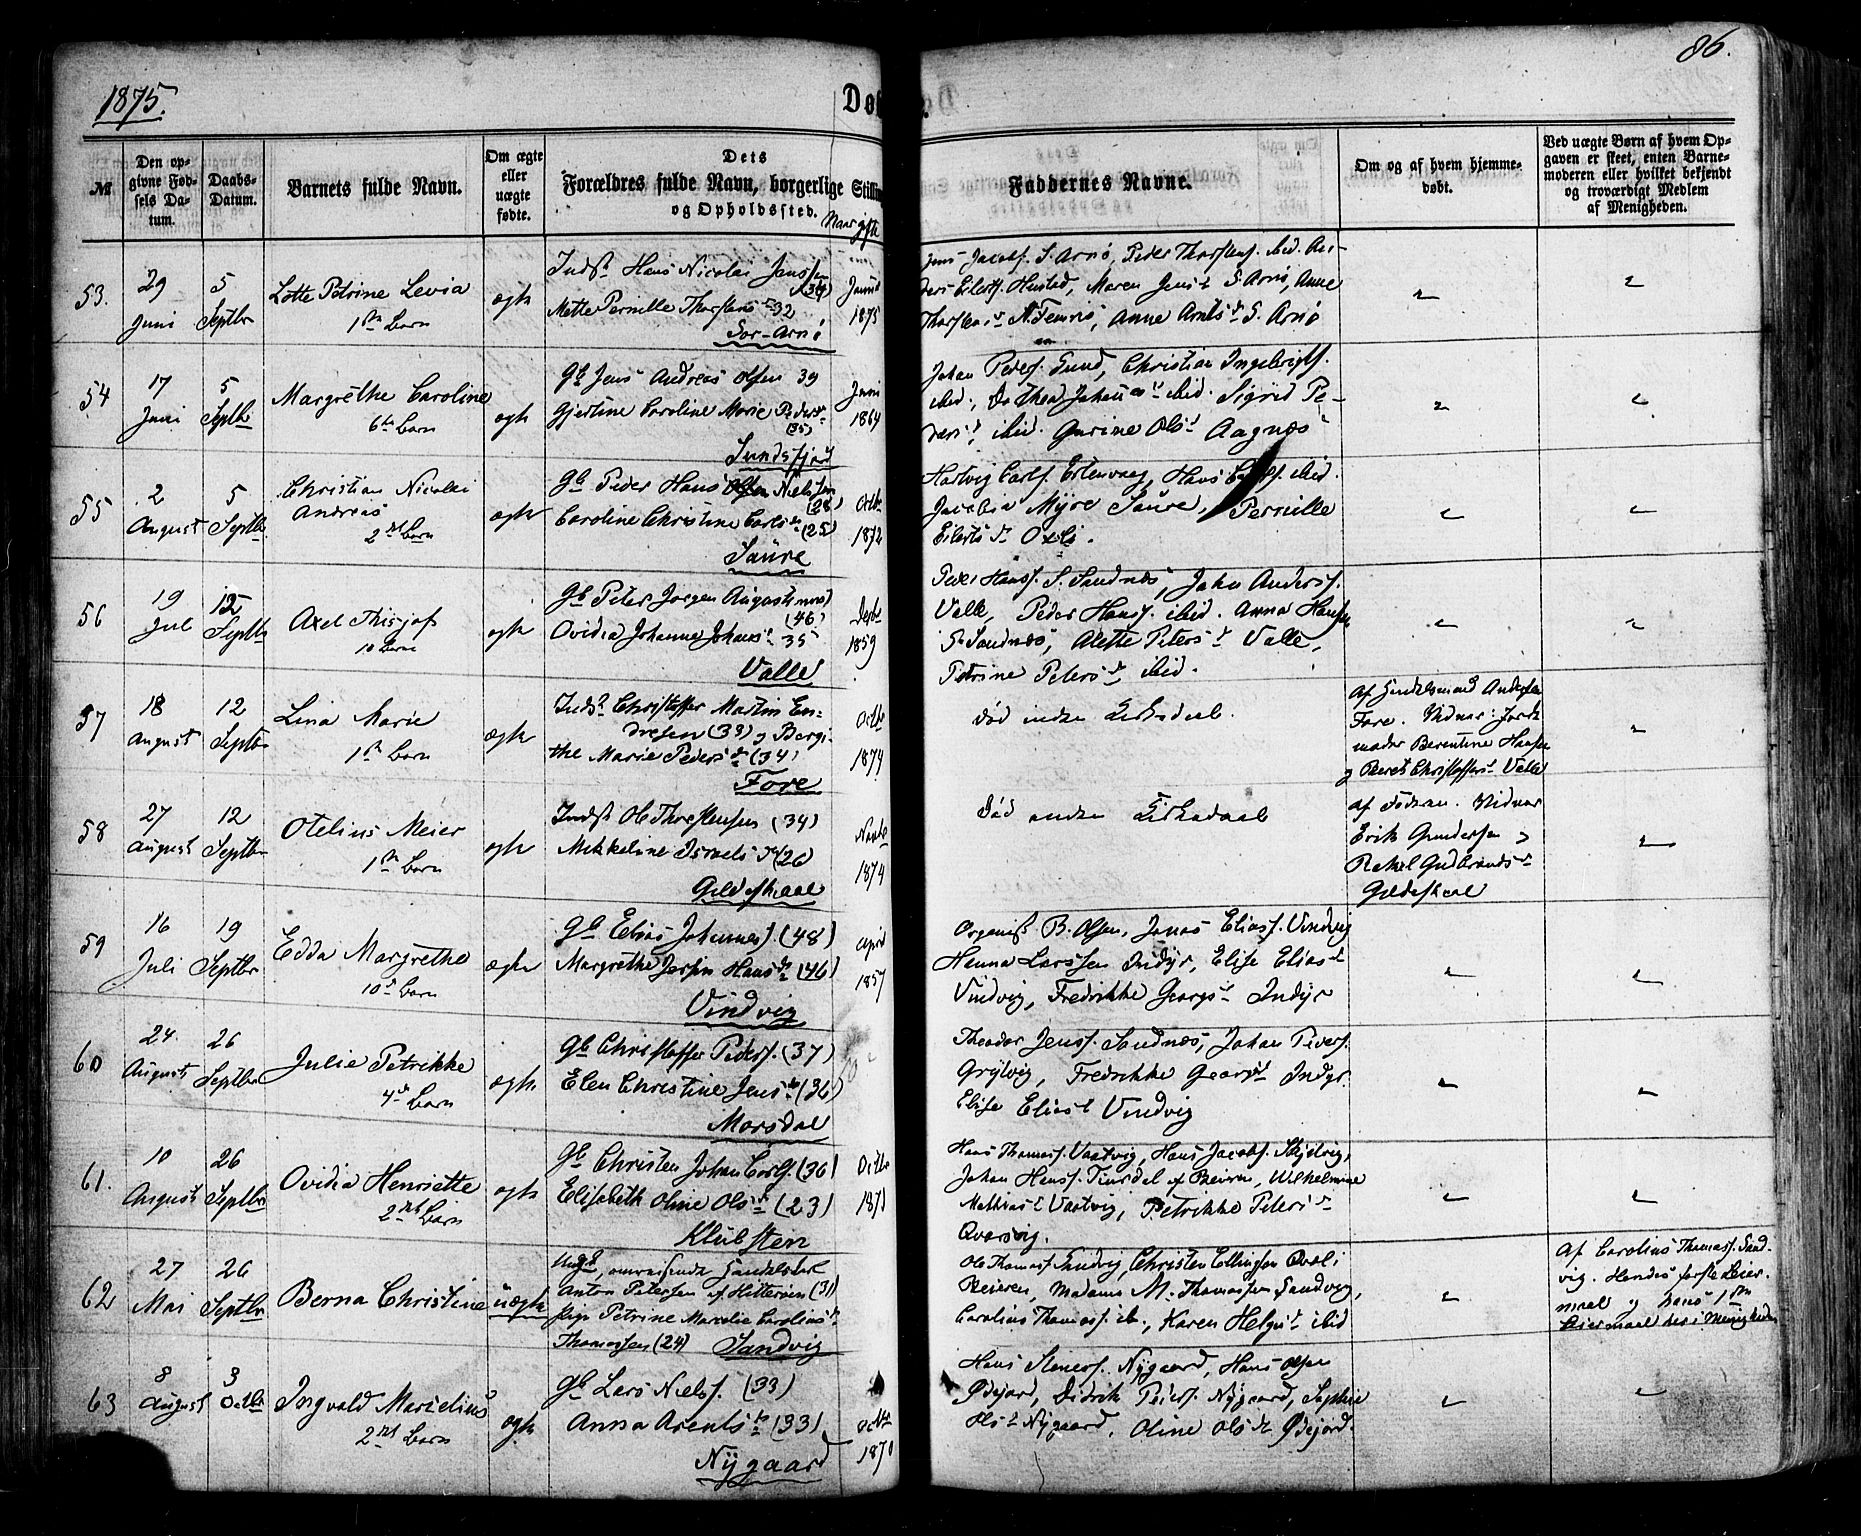 1875.
86.
Dø
№
Den op-
givne Fød-
sels Da-
tum.
Daabs-
Datum.
Barnets fulde Navn.
Om ægte
eller
uægte
fødte.
Dets
Forældres fulde Navn, borgerlige Stilling
og Opholdssted.
Naar gifte
Faddernes Navne.
Om og af hvem hjemme-
døbt.
Ved uægte Børn af hvem Op-
gaven er skeet, enten Barne-
moderen eller hvilket bekjendt
og troværdigt Medlem
af Menigheden.
53.
29
Juni
5
Septbr
Lotte Petrine Levia
1ste Barn
ægte
Indst Hans Nicolai Jenssen
(34)
Mette Pernille Thorstens 32
Sør-Arnø
1875
Jens Jacobs. S. Arnø, Peder Thorstens. ibid. An-
ders Eilerts. Hustad, Maren Jens S. Arnø, Anne
Anne Arnts S. Arnø
54
17
Juni
5
Septb
Margrethe Caroline
6te Barn
ægte
Gb Jens Andreas Olsen 39
Gjertine Caroline Marie Peders
(35)
Sundsfjord
Juni
1864
Johan Peders. Sund, Christian Ingebrigts.
ibid., Dothea Johans ibid. Sigrid Pe-
ders, ibid. Gurine Ols Aagnæs
55
2
August
5
Septbr
Christian Nicolai
Andreas
2det Barn
ægte
Gb Peder Hans Nielssen
(28)
Caroline Christine Carls
(25)
Saure
Octb
1872
Hartvig Carls. Ertenvaag, Hans Carls. ibid.
Jacobia Myre Saure, Pernille
Eilerts Oxli.
56
19
Jul
12
Septb
Axel Thisjof
10 Barn
ægte
Gb Peter Jørgen Augustinus
(46)
Ovidia Johanne Johans 35
Valle
1859
Peder Hanss. S. Sandnæs, John Anders.
Valle, Peder Hanss. ibid. Anna Hans
S. Sandnæs, Anette Peters Valle,
Petrine Peters ibid.
57
18
August
12
Septb
Lina Marie
1ste Barn
ægte
Inds Christoffer Martin En-
dresen (33) og Bergi-
the Marie Peders (34)
Fore
Octb
1874
Død inden Kirkedaab.
Fore. Vidner: Jorde
moder Berentine Hansen
og Beret Christoffers Valle
58
27
August
12
Septbr
Otelius Meier
1ste Barn
ægte
Indst Ole Thorstensen (34)
Mekkeline Israels (26)
Gildeskaal
Novbr
1874
Død inden Kirkedaab
Vidner
Erik Gundersen og
Rakel Gudbrands
Gildeskaal
59
16
Juli
19
Septbr
Edda Margrethe
10de Barn
ægte
Gb Elias Johannes. (48)
Margrethe Hans (46)
Vindvig
April
1857
Organist B. Olsen, Jonas Elias. Vindvig
Hanna Larssen Indyr, Elise Elias
Vindvig, Fredrikke Georgs Indyr
60
24
August
26
Septbr
Julie Petrikke
4de Barn
ægte
Gb Christoffer Peders. (37)
Elen Christine Jens (36)
Morsdal
Theodor Jenss. Sandnæs, Johan Peders.
Grytvig, Fredrikke Georgs Indyr.
Elise Elias Vindvig
61.
10
August
26
Septbr
Ovidia Henriette
2det Barn
ægte
Gb Christen Johan Carls. (36)
Elisabeth Oline Ols (23)
Klubsten
Octbr
1871
Hans Thomass. Vaatvig, Hans Jacobs. Skjelvig,
Johan Hanss. af Beiern, Wilhelmine
Mathias Vaatvig, Petrikke Peters
Qvarsvig.
62
27
Mai
26
Septbr
Berna Christine
uægte
Ungk omreisende
Anton Petersen af Hitterøen (31)
Pige Petrine Marcelie Carolius
Thomassen (24) Sandvig
Ole Thomas. Sandvig, Christen Ellingsen
Beieren, Madame M. Thomassen Sandvig,
Carolius Thomas. ib., Karen Helgs ibid
Af Carolius Thomas. Sand-
vig. Hendes første Leier-
maal og hans 1ste
Leiermaal her i Menigheden
63
8
August
3
Octbr
Ingvald Marselius
2det Barn
ægte
Gb Lars Niels. (33)
Anna Arents (33)
Nygaard
Octb
1870
Hans Steners. Nygaard, Hans Olsen
Ødejord, Didrik Peders. Nygaard, Sophie
Nygaard, Oline Ols Ødejord.